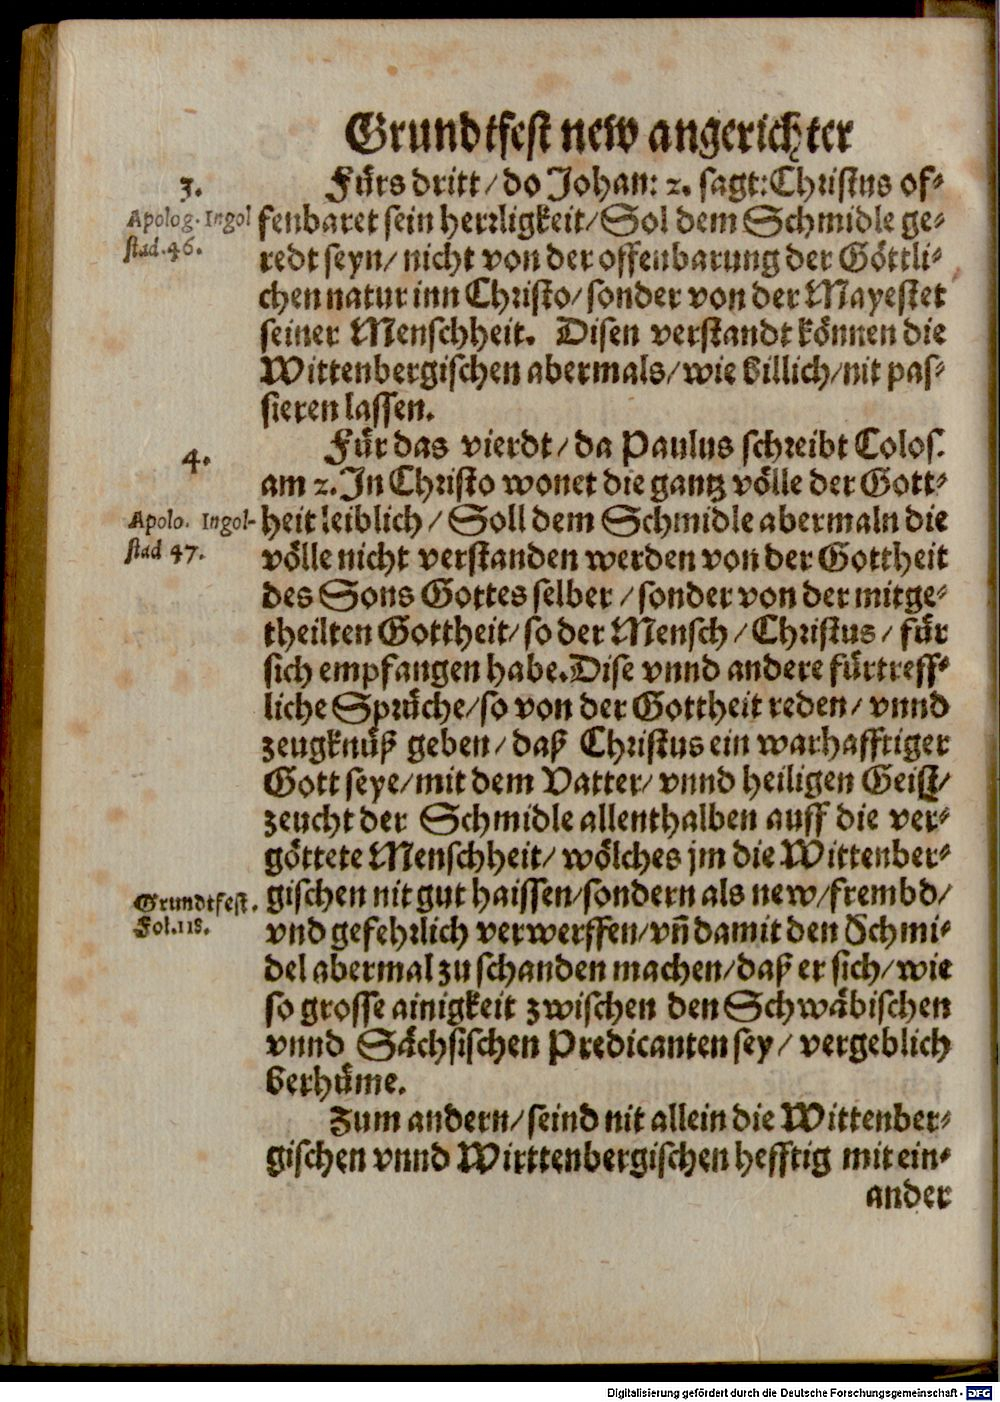 Grundtfest new angerichter
3.
Fürs dritt/ do Johan: 2. sagt: Christus of-
Apolog. Ingol
stad. 46.
fenbaret sein herrligkeit/ Sol dem Schmidle ge-
redt seyn/ nicht von der offenbarung der Göttli-
chen natur inn Christo/ sonder von der Mayestet
seiner Menschheit. Disen verstandt können die
Wittenbergischen abermals/ wie billich/ nit pas-
sieren lassen.
4.
Für das vierdt/ da Paulus schreibt Colos.
am 2. In Christo wonet die gantz völle der Gott-
Apolo. Ingol-
stad 47.
heit leiblich/ Soll dem Schmidle abermaln die
völle nicht verstanden werden von der Gottheit
des Sons Gottes selber/ sonder von der mitge-
theilten Gottheit/ so der Mensch/ Christus/ für
sich empfangen habe. Dise vnnd andere fürtreff-
liche Sprüche/ so von der Gottheit reden/ vnnd
zeugknüß geben/ daß Christus ein warhafftiger
Gott seye/ mit dem Vatter/ vnnd heiligen Geist/
zeucht der Schmidle allenthalben auff die ver-
göttete Menschheit/ wölches jm die Wittenber-
Grundtfest.
Fol. 118.
gischen nit gut haissen/ sondern als new/ frembd/
vnd gefehrlich verwerffen/ vñ damit den Schmi-
del abermal zu schanden machen/ daß er sich/ wie
so grosse ainigkeit zwischen den Schwäbischen
vnnd Sächsischen Predicanten sey/ vergeblich
berhüme.
Zum andern/ seind nit allein die Wittenber-
gischen vnnd Wirttenbergischen hefftig mit ein-
ander
Digitalisierung gefördert durch die Deutsche Forschungsgemeinschaft - DFG